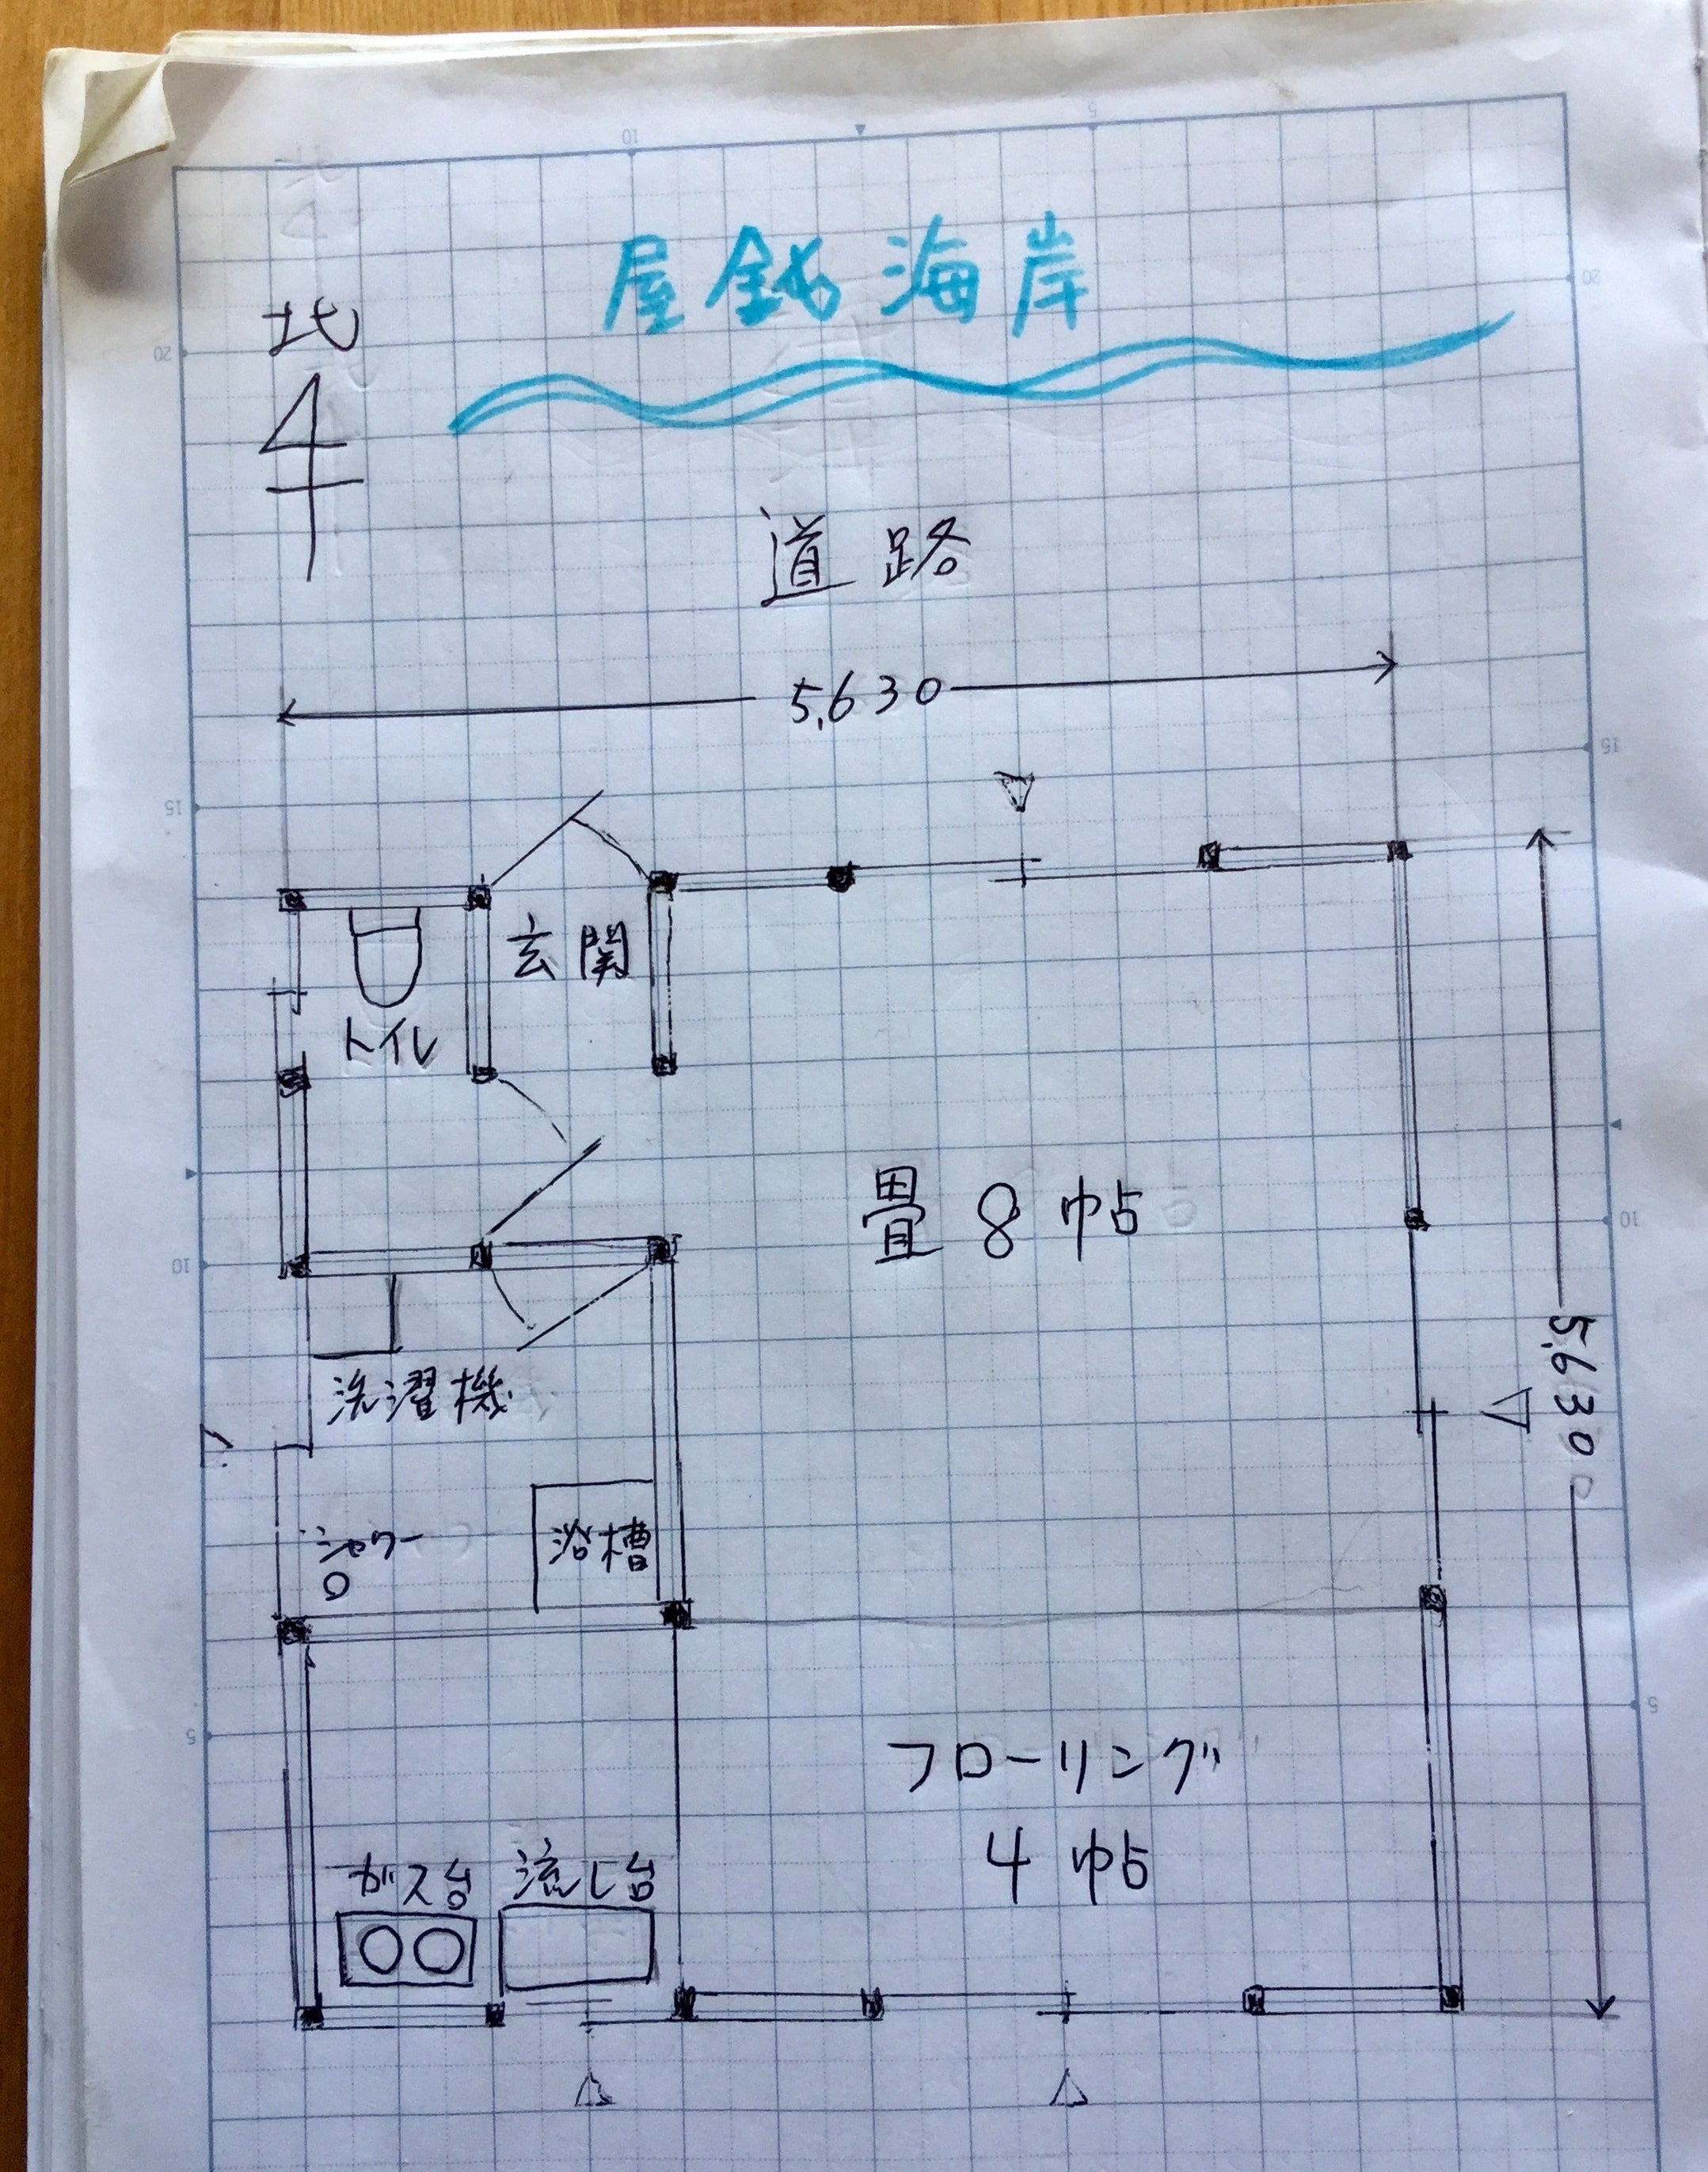 屋鈍海岸
北
道路
5,630
玄関
トイレ
畳8帖
5,630
洗濯機
シャワー
浴槽
フローリング
4帖
ガス台 流し台
10
5
20
20
15
15
10
10
5
5